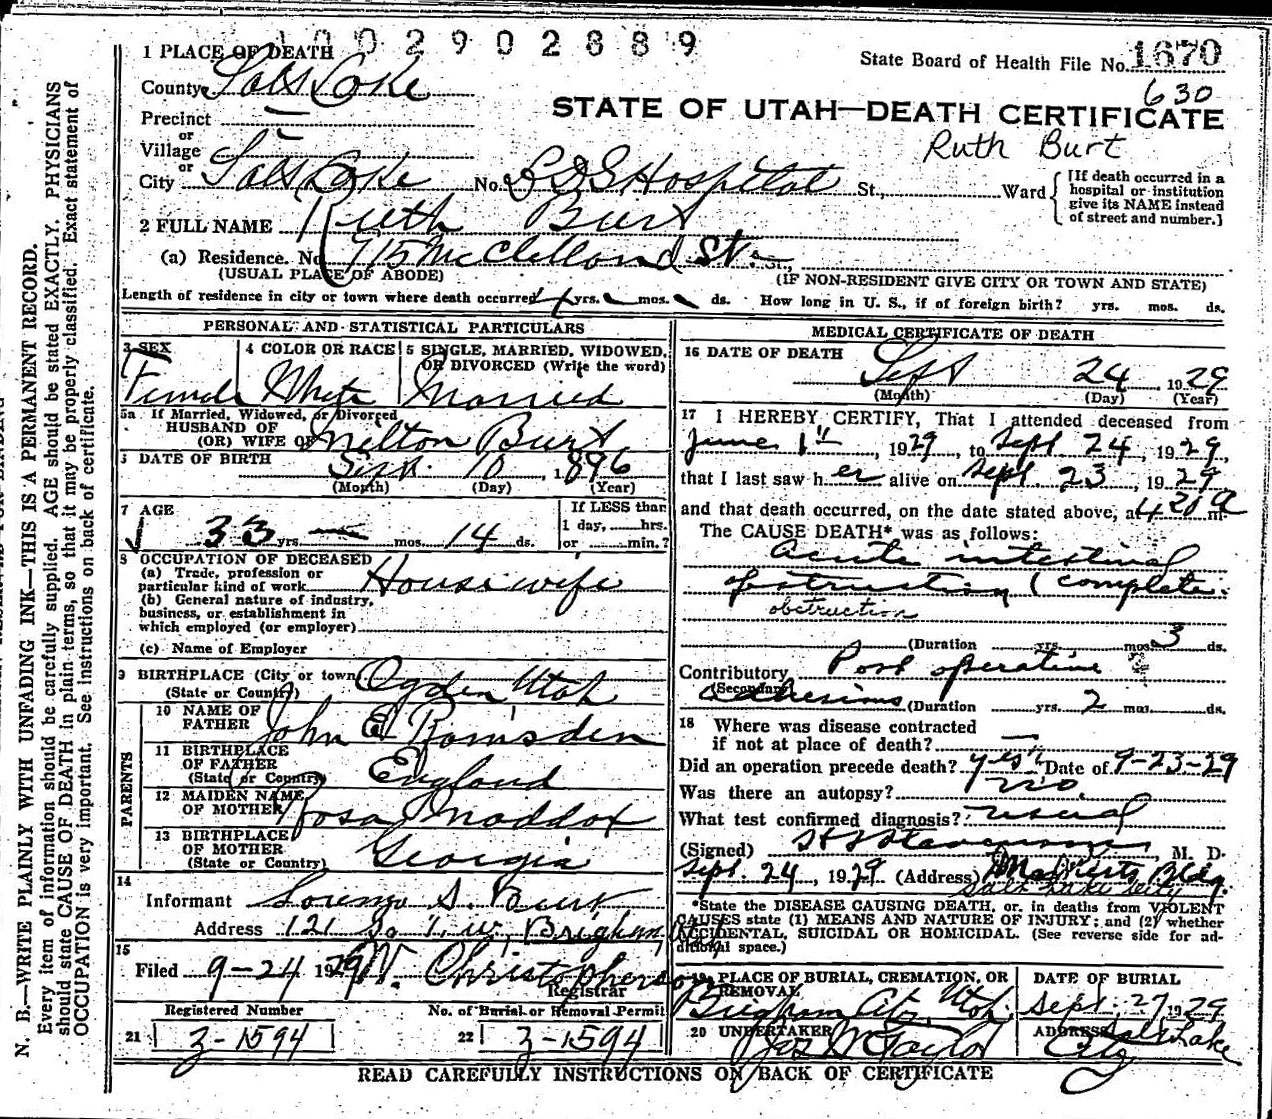 1002902889
1 PLACE OF DEATH
State Board of Health File No. 1670
County Salt Lake
630
STATE OF UTAH—DEATH CERTIFICATE
Precinct —
or
Village —
Ruth Burt
or
City Salt Lake No. LDS Hospital St., Ward
[If death occurred in a hospital or institution give its NAME instead of street and number.]
2 FULL NAME Ruth Burt
(a) Residence. No. 715 McClelland St. St.,
(USUAL PLACE OF ABODE) (IF NON-RESIDENT GIVE CITY OR TOWN AND STATE)
Length of residence in city or town where death occurred yrs. mos. ds. How long in U. S., if of foreign birth? yrs. mos. ds.
PERSONAL AND STATISTICAL PARTICULARS
3 SEX 4 COLOR OR RACE 5 SINGLE, MARRIED, WIDOWED,
OR DIVORCED (Write the word)
Female White Married
5a If Married, Widowed, or Divorced
HUSBAND OF
(OR) WIFE OF Milton Burt
DATE OF BIRTH Sept. 10, 1896
(Month) (Day) (Year)
7 AGE If LESS than
33 yrs. — mos. 14 ds. 1 day, hrs.
or min.?
8 OCCUPATION OF DECEASED
(a) Trade, profession or
particular kind of work Housewife
(b) General nature of industry,
business, or establishment in
which employed (or employer)
(c) Name of Employer
9 BIRTHPLACE (City or town) Ogden Utah
(State or Country)
PARENTS
10 NAME OF
FATHER John E Ramsden
11 BIRTHPLACE
OF FATHER
(State or Country) England
12 MAIDEN NAME
OF MOTHER Rosa Maddox
13 BIRTHPLACE
OF MOTHER
(State or Country) Georgia
14
Informant Lorenzo S. Burt
Address 121 So 1 W, Brigham
15
Filed 9-24 1929 W. Christopherson
Registrar
Registered Number No. of Burial or Removal Permit
21 3-1594 22 3-1594
MEDICAL CERTIFICATE OF DEATH
16 DATE OF DEATH
Sept 24, 1929
(Month) (Day) (Year)
17 I HEREBY CERTIFY, That I attended deceased from
June 1st, 1929, to Sept 24, 1929,
that I last saw her alive on Sept 23, 1929
and that death occurred, on the date stated above, at 4 20 a m.
The CAUSE DEATH* was as follows:
Acute intestinal
obstruction (complete
obstruction
(Duration yrs. mos. 3 ds.
Contributory Post operative
(Secondary)
adhesions (Duration yrs. 2 mos. ds.
18 Where was disease contracted
if not at place of death? —
Did an operation precede death? yes Date of 9-23-29
Was there an autopsy? no.
What test confirmed diagnosis? usual
(Signed) M. D.
Sept. 24, 1929 (Address) Bldg.
Salt Lake City
*State the DISEASE CAUSING DEATH, or, in deaths from VIOLENT
CAUSES state (1) MEANS AND NATURE OF INJURY; and (2) whether
ACCIDENTAL, SUICIDAL OR HOMICIDAL. (See reverse side for ad-
ditional space.)
19 PLACE OF BURIAL, CREMATION, OR
REMOVAL
Brigham City, Utah
DATE OF BURIAL
Sept. 27 1929
20 UNDERTAKER Jos Wm Taylor
ADDRESS Salt Lake
City
READ CAREFULLY INSTRUCTIONS ON BACK OF CERTIFICATE
N. B.—WRITE PLAINLY WITH UNFADING INK—THIS IS A PERMANENT RECORD.
Every item of information should be carefully supplied. AGE should be stated EXACTLY. PHYSICIANS
should state CAUSE OF DEATH in plain terms, so that it may be properly classified. Exact statement of
OCCUPATION is very important. See instructions on back of certificate.